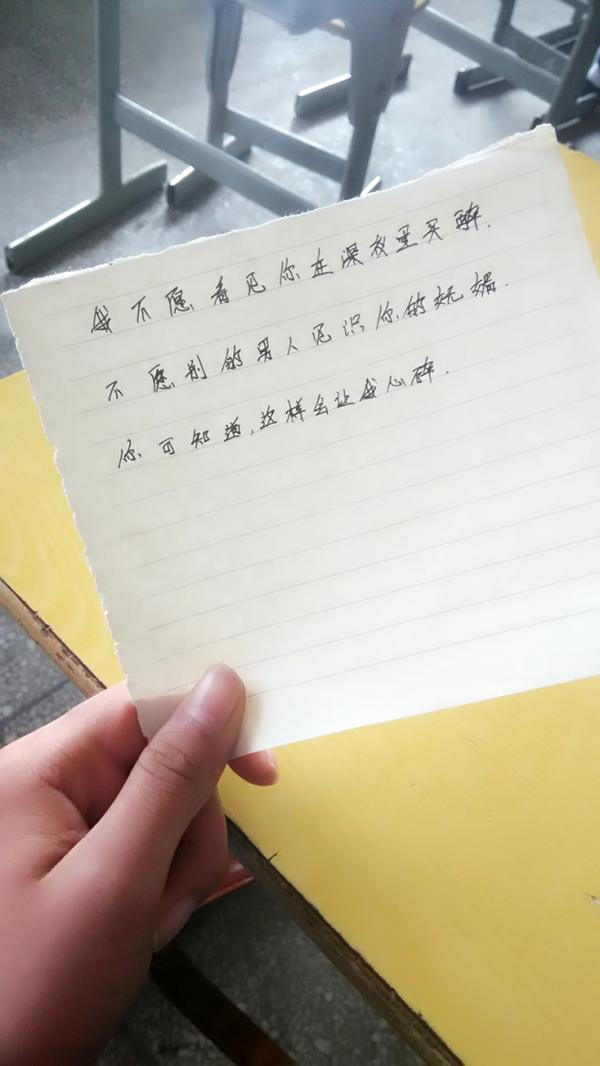 我不愿看见你在深夜里买醉.
不愿别的男人见识你的妩媚.
你可知道,这样会让我心碎.